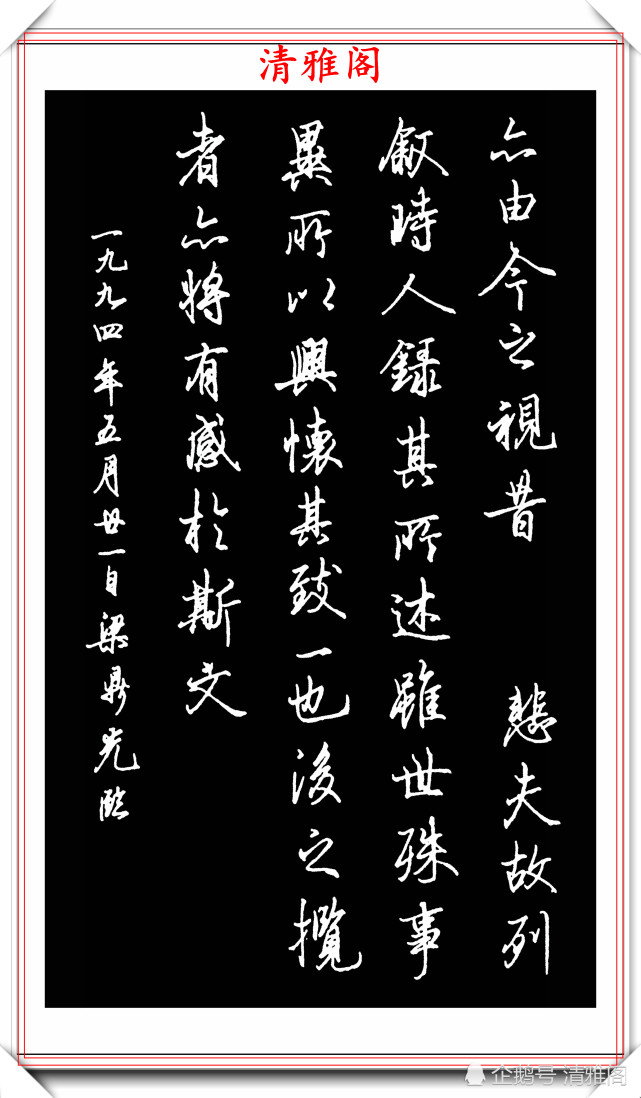 清雅阁
亦由今之視昔 悲夫故列
敘時人録其所述雖世殊事
異所以興懷其致一也後之攬
者亦將有感於斯文
一九九四年五月廿一日梁鼎光臨
企鹅号 清雅阁